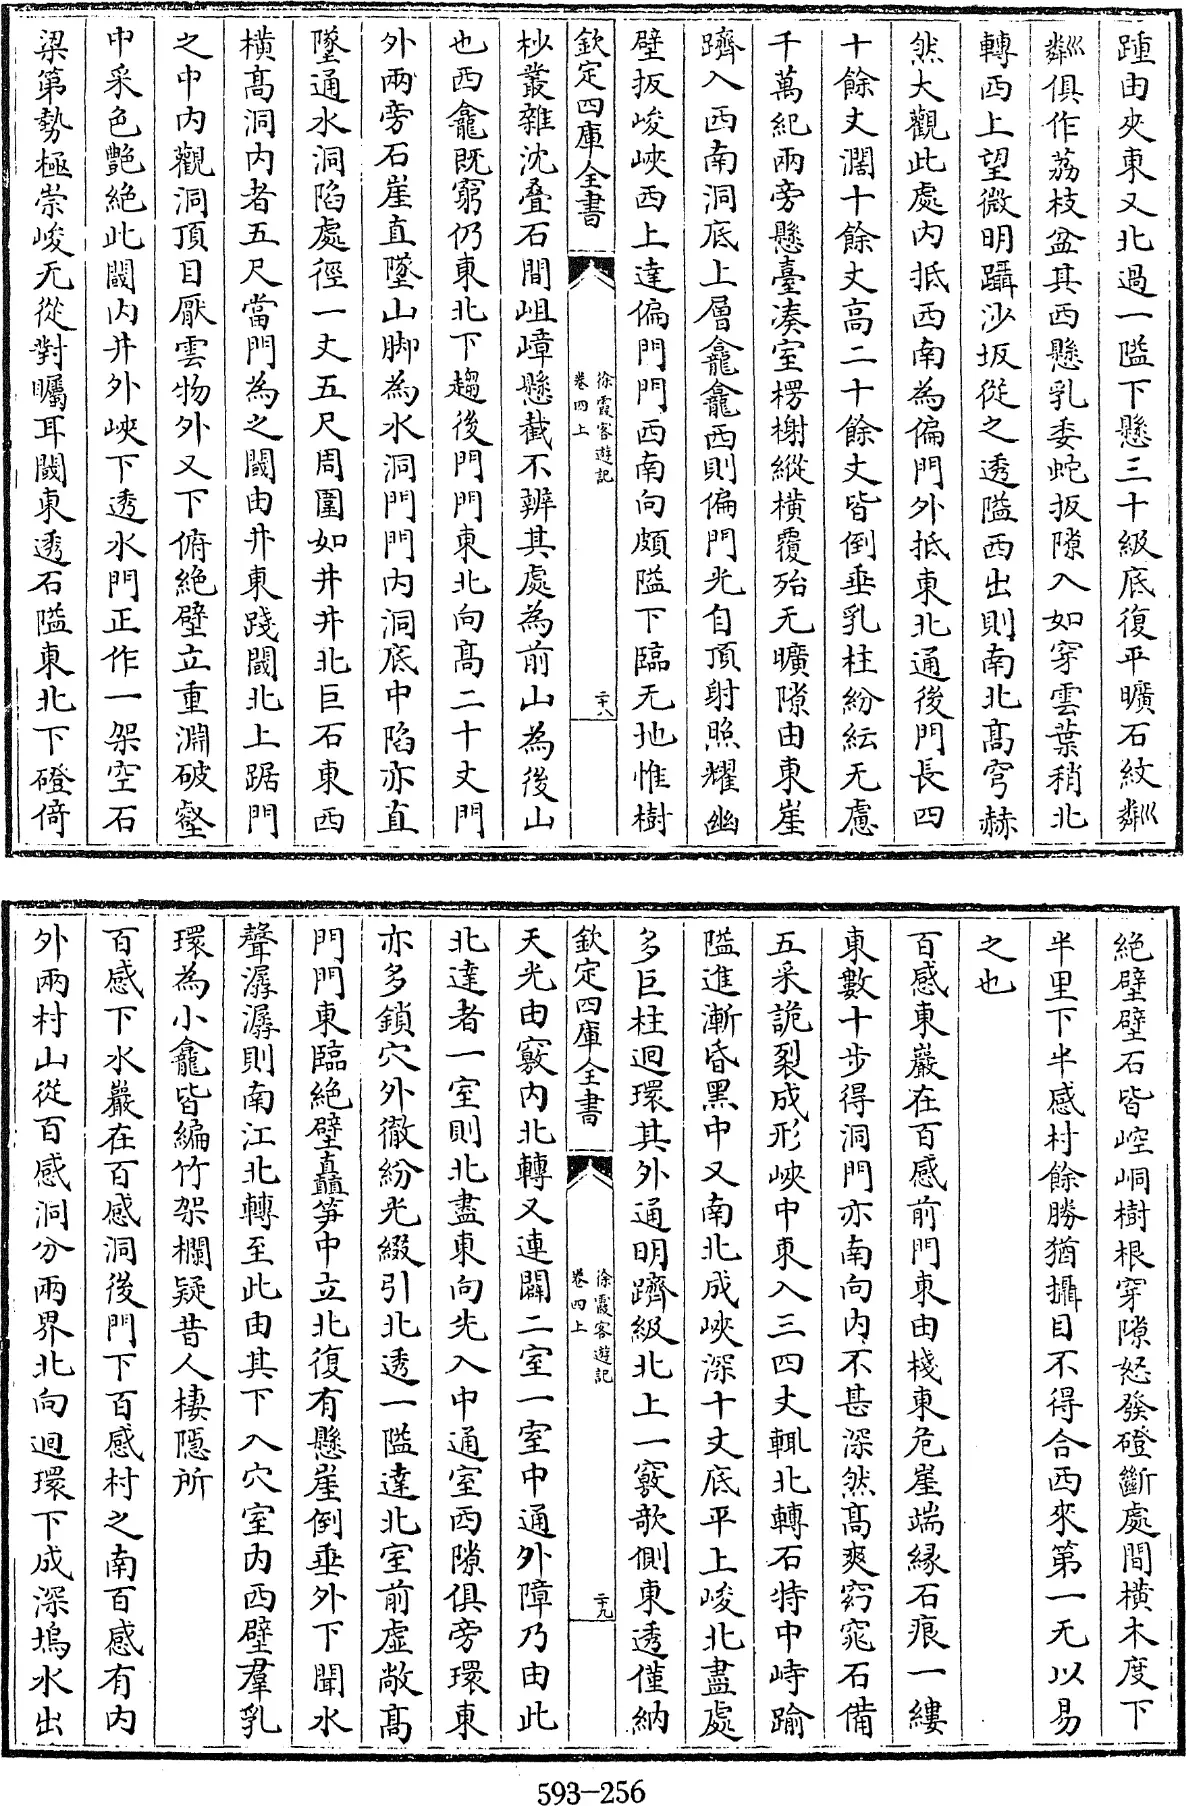 踵由夾東又北過一隘下懸三十級底復平曠石紋粼
粼俱作荔枝盆其西懸乳委蛇扳隙入如穿雲葉稍北
轉西上望微明躡沙坂從之透隘西出則南北高穹赫
然大觀此處内抵西南為偏門外抵東北通後門長四
十餘丈濶十餘丈高二十餘丈皆倒垂乳柱紛紜无慮
千萬紀兩旁懸臺凑室楞榭縱横覆殆无曠隙由東崖
躋入西南洞底上層龕龕西則偏門光自頂射照耀幽
壁扳峻峽西上達偏門門西南向頗隘下臨无地惟樹
欽定四庫全書
徐霞客遊記
卷四上
二十八
杪叢雜沈叠石間岨嶂懸截不辨其處為前山為後山
也西龕既窮仍東北下趨後門門東北向高二十丈門
外兩旁石崖直墜山脚為水洞門門内洞底中陷亦直
墜通水洞陷處徑一丈五尺周圍如井井北巨石東西
横高洞内者五尺當門為之閾由井東踐閾北上踞門
之中内觀洞頂目厭雲物外又下俯絶壁立重淵破壑
中采色艷絶此閾内井外峽下透水門正作一架空石
梁第勢極崇峻无從對矚耳閾東透石隘東北下磴倚
絶壁壁石皆崆峒樹根穿隙怒發磴斷處間横木度下
半里下半感村餘勝猶攝目不得合西來第一无以易
之也
百感東巖在百感前門東由棧東危崖端緣石痕一縷
東數十步得洞門亦南向内不甚深然高爽窈窕石備
五采詭裂成形峽中東入三四丈輒北轉石特中峙踰
隘進漸昏黑中又南北成峽深十丈底平上峻北盡處
多巨柱迴環其外通明躋級北上一竅欹側東透僅納
欽定四庫全書
徐霞客遊記
卷四上
二十九
天光由竅内北轉又連闢二室一室中通外障乃由此
北達者一室則北盡東向先入中通室西隙俱旁環東
亦多鎖穴外徹紛光綴引北透一隘達北室前虛敞高
門門東臨絶壁矗笋中立北復有懸崖倒垂外下聞水
聲潺潺則南江北轉至此由其下入穴室内西壁羣乳
環為小龕皆編竹架欄疑昔人棲隱所
百感下水巖在百感洞後門下百感村之南百感有内
外兩村山從百感洞分兩界北向迴環下成深塢水出
593-256